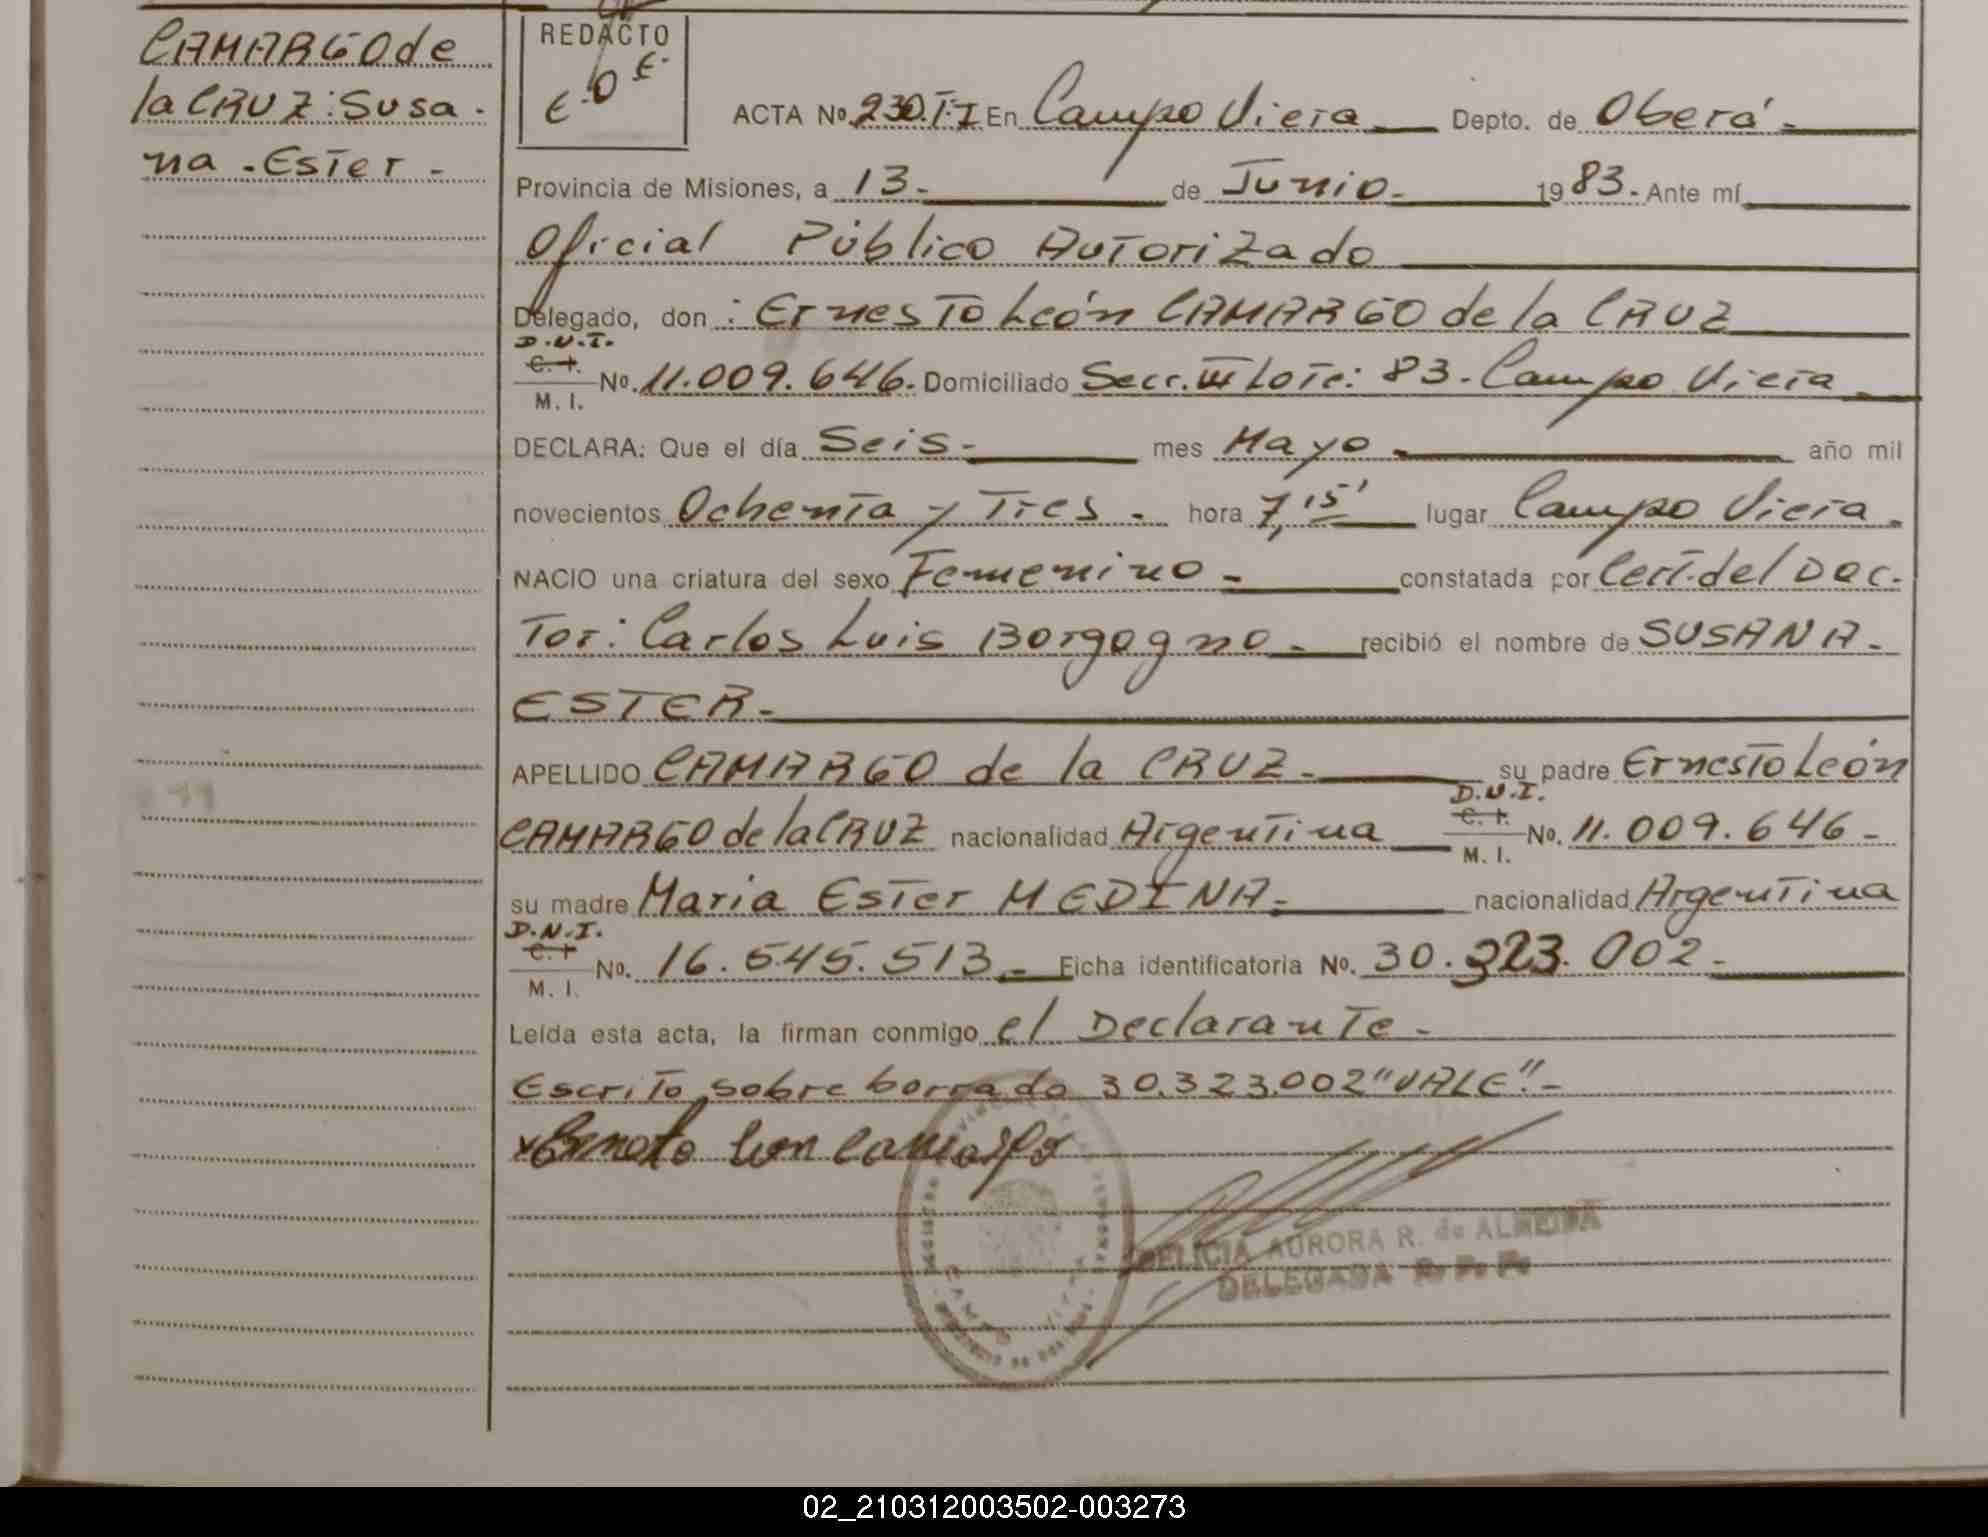 CAMARGO de
la CRUZ: Susa-
na - Ester -
REDACTO
E.O.E.
ACTA No. 230.T-I En Campo Viera Depto. de Oberá -
Provincia de Misiones, a 13 - de Junio - 1983 - Ante mí
Oficial Público Autorizado
Delegado, don : Ernesto León CAMARGO de la CRUZ
D.N.I.
C. I.
M. I. No. 11.009.646. Domiciliado Secc. III Lote: 83 - Campo Viera
DECLARA: Que el día Seis - mes Mayo - año mil
novecientos Ochenta y Tres - hora 7,15' lugar Campo Viera -
NACIO una criatura del sexo Femenino - constatada por Cert. del Doc-
tor: Carlos Luis Borgogno - recibió el nombre de SUSANA -
ESTER -
APELLIDO CAMARGO de la CRUZ - su padre Ernesto León
D.N.I.
CAMARGO de la CRUZ nacionalidad Argentina C. I. M. I. No. 11.009.646 -
su madre Maria Ester MEDINA - nacionalidad Argentina
D.N.I.
C. I.
M. I. No. 16.545.513 - Ficha identificatoria No. 30.323.002 -
Leída esta acta, la firman conmigo el Declarante -
Escrito sobre borrado 30.323.002 "VALE" -
x Ernesto Leon Camargo
DELICIA AURORA R. de ALMEIDA
DELEGADA R. P. P.
02_210312003502-003273